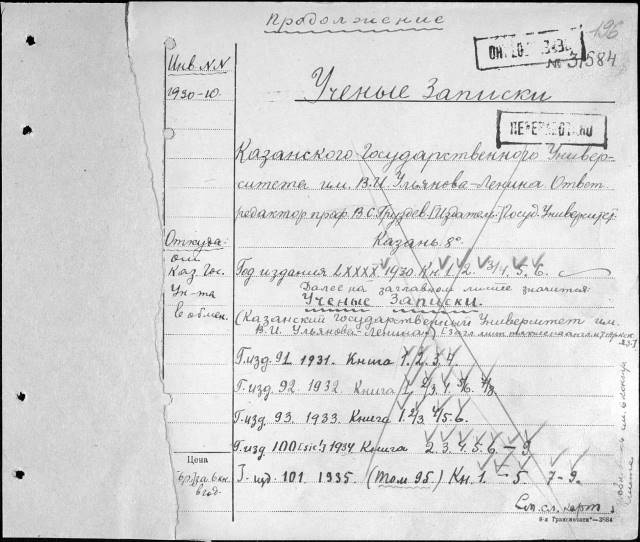 Продолжение
196
№ 31584
Инв. NN
1930-10.
Ученые Записки
ПЕРЕРАБОТАНО
Казанского Государственного Универ-
ситета им. В.И. Ульянова-Ленина Ответ.
редактор проф. В.С. Груздев. [Издатель:] Госуд. Университет
Казань. 8°.
Откуда:
от
Каз. Гос.
Ун-та
в обмен.
Год издания LXXXX 1930. Кн. 1. 2. 3/4. 5. 6.
Далее на заглавном листе значится:
Ученые Записки.
(Казанский Государственный Университет им.
В.И. Ульянова-Ленина)
Г. изд. 91. 1931. Книга 1. 2. 3. 4.
Г. изд. 92. 1932. Книга 1, 2/3. 4. 5/6. 7/8.
Г. изд. 93. 1933. Книга 1. 2/3 4/5. 6.
Г. изд. 100 [sic!] 1934 Книга 2. 3. 4. 5. 6. 7-9.
Г. изд. 101. 1935. (Том 95.) Кн. 1. – 5. 7-9.
Цена
5р. за 6 кн.
в год.
См. сл. карт.